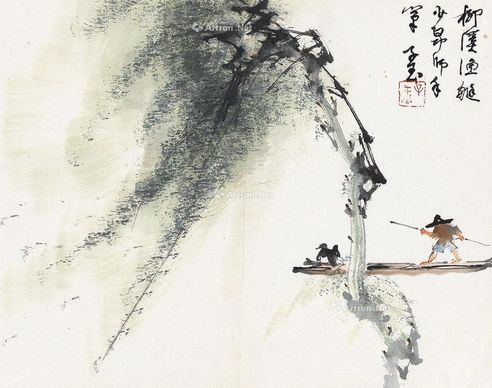 柳溪漁艇
少昂師
筆 子
Artron.Net
Artron.Net
Artron.Net